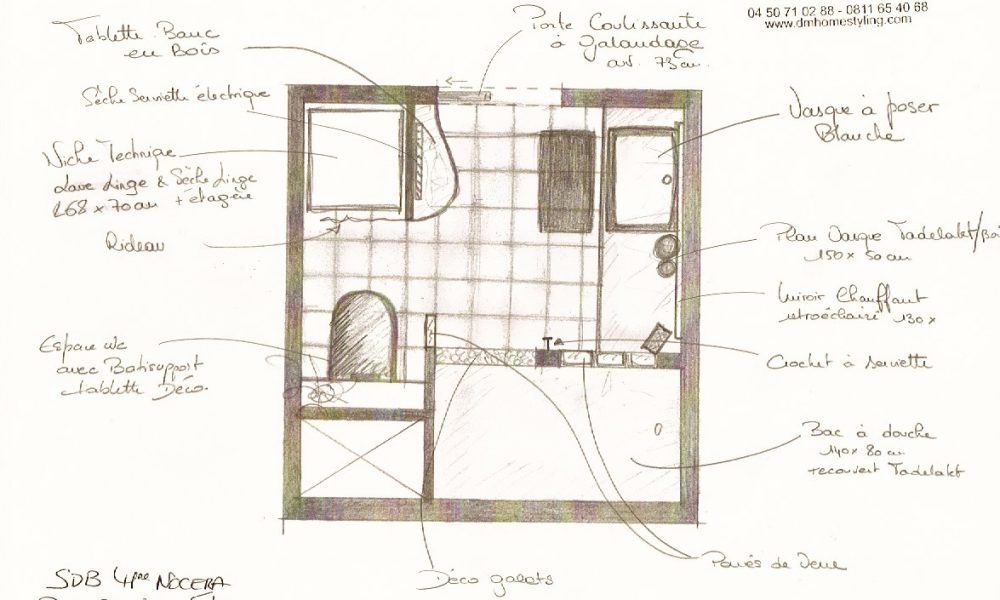 04 50 71 02 88 - 0811 65 40 68
www.dmhomestyling.com
Tablette Banc
en Bois
Porte Coulissante
à Galandage
av. 73 cm.
Sèche Serviette électrique
Vasque à poser
Blanche
Niche Technique
Lave Linge & Sèche Linge
168 x 70 cm + étagère
Rideau
Plan Vasque Tadelakt/
150 x 50 cm
Miroir Chauffant
rétroéclairé 130 x
Espace wc
avec Batisupport
tablette Déco.
Crochet à serviette
Bac à douche
140 x 80 cm
recouvert Tadelakt
Déco galets
Pavés de Verre
SDB NOCERA